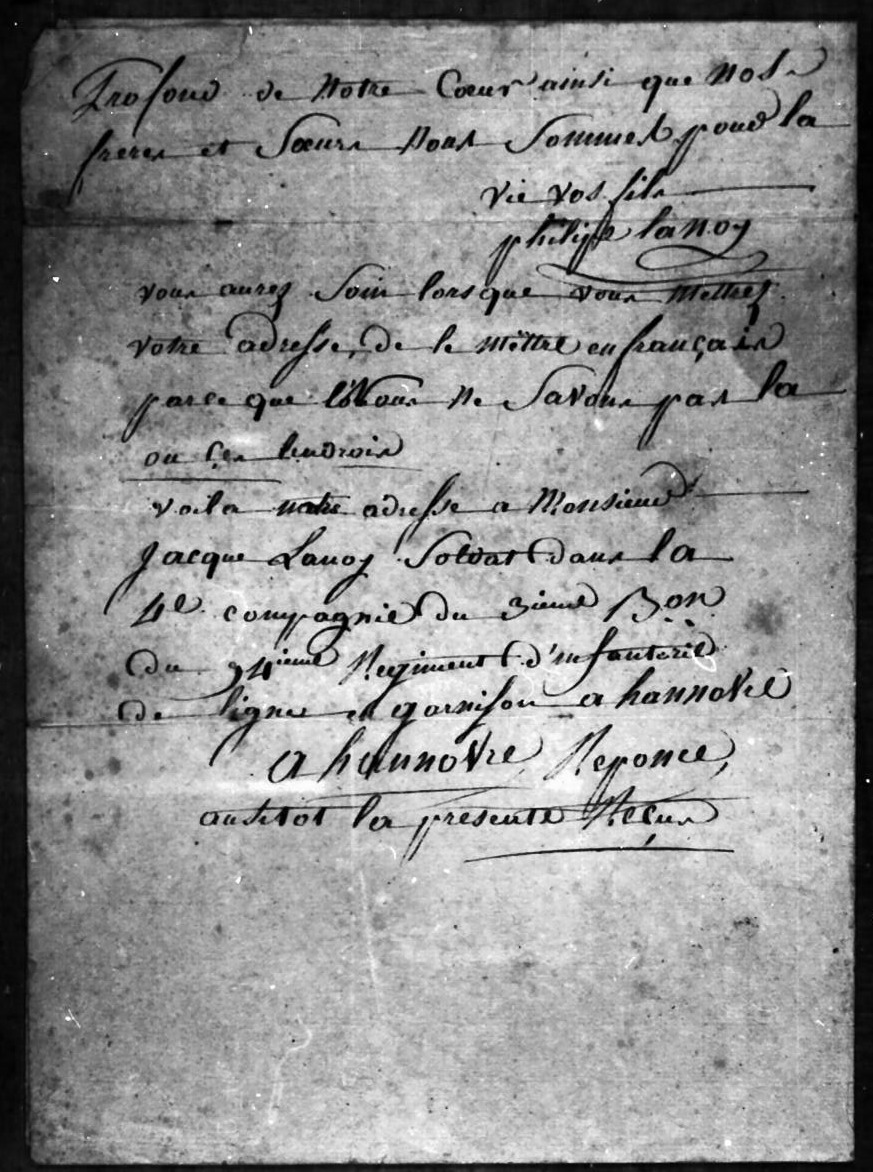 Profond de Notre Cœur ainsi que Nos
freres et Sœurs Nous Sommes pour la
vie vos fils
philipe lanoy
vous aurez Soin lorsque vous mettrez
votre adresse, de le mettre en français
parce que Nous Ne Savons pas la
ou ses lendrois
voila notre adresse a Monsieur
Jacque Lanoy Soldat dans la
4e compagnie du 3ieme Bon
du 94ieme Regiment d'infanterie
de ligne en garnison a hannovre
a hannovre, Reponce,
ausitot la presente Reçus